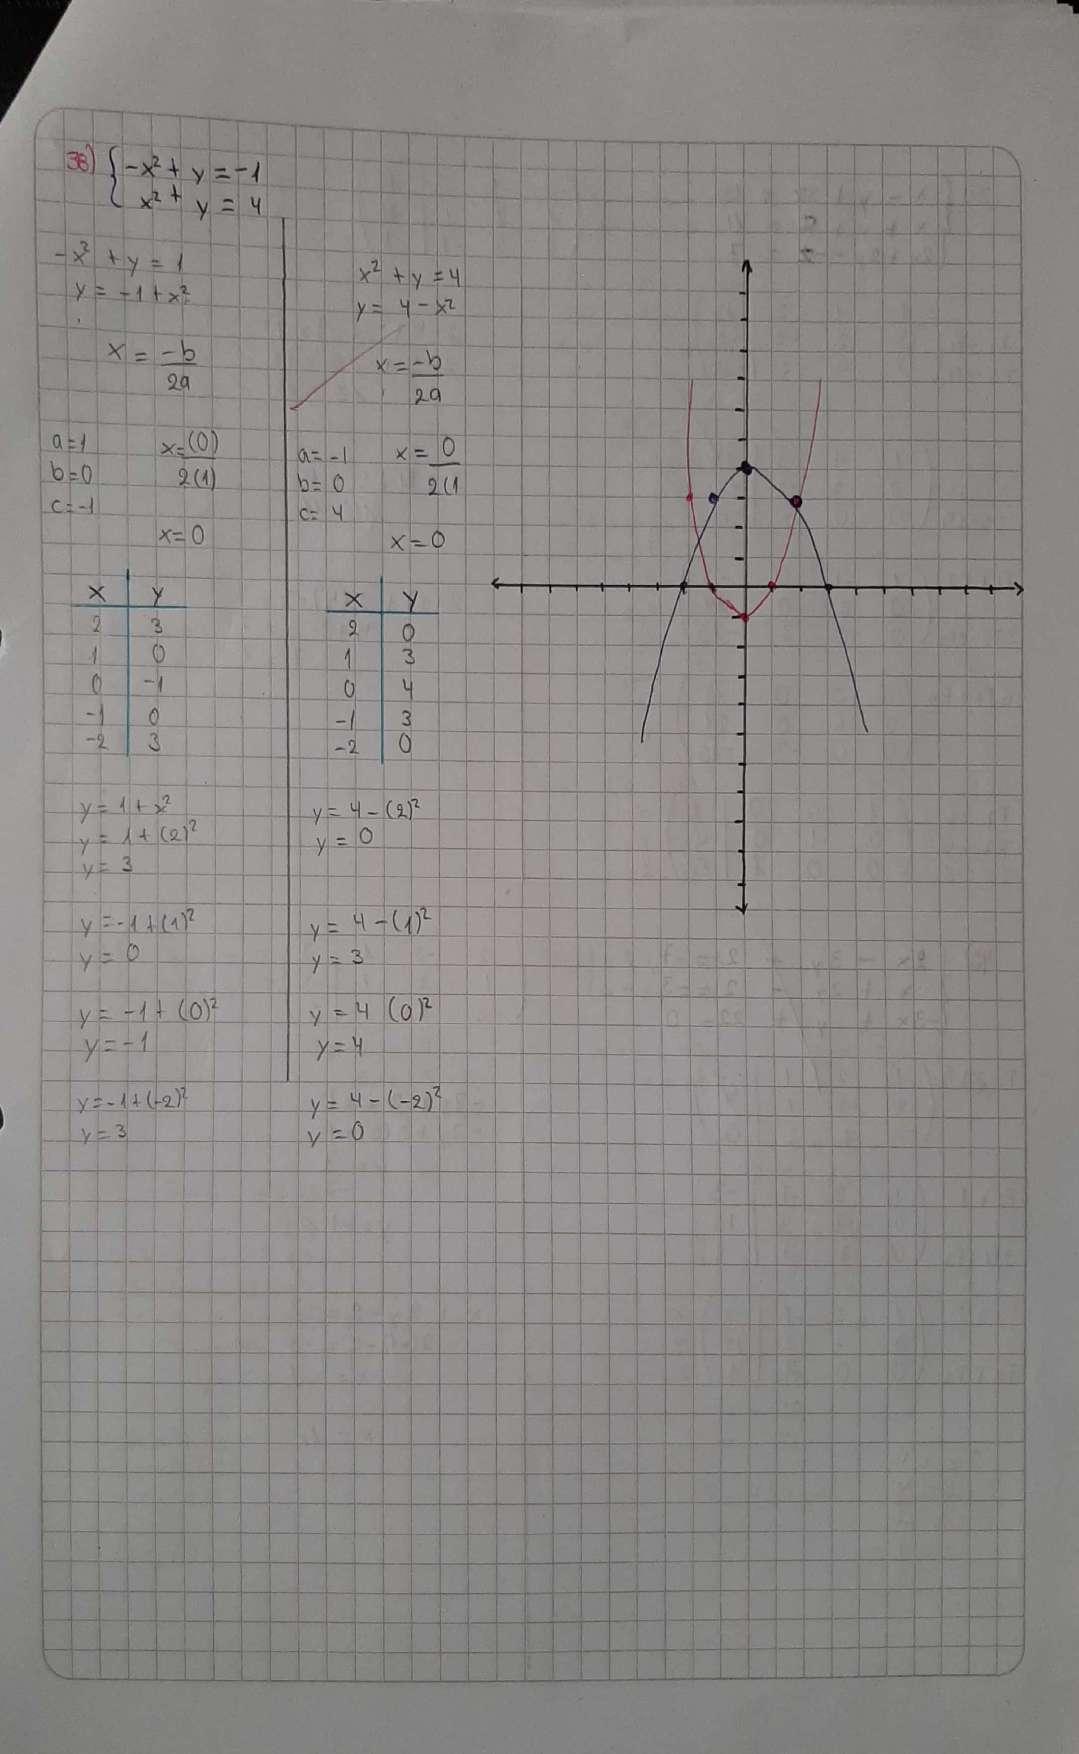 38) { -x² + y = -1
x² + y = 4
-x² + y = 1
y = -1 + x²
x = -b
2a
a=1
b=0
c=-1
x=(0)
2(1)
x=0
x y
2 3
1 0
0 -1
-1 0
-2 3
y = 1 + x²
y = 1 + (2)²
y = 3
y = -1 + (1)²
y = 0
y = -1 + (0)²
y = -1
y = -1 + (-2)²
y = 3
x² + y = 4
y = 4 - x²
x = -b
2a
a = -1
b = 0
c = 4
x = 0
2(1
x = 0
x y
2 0
1 3
0 4
-1 3
-2 0
y = 4 - (2)²
y = 0
y = 4 - (1)²
y = 3
y = 4 (0)²
y = 4
y = 4 - (-2)²
y = 0